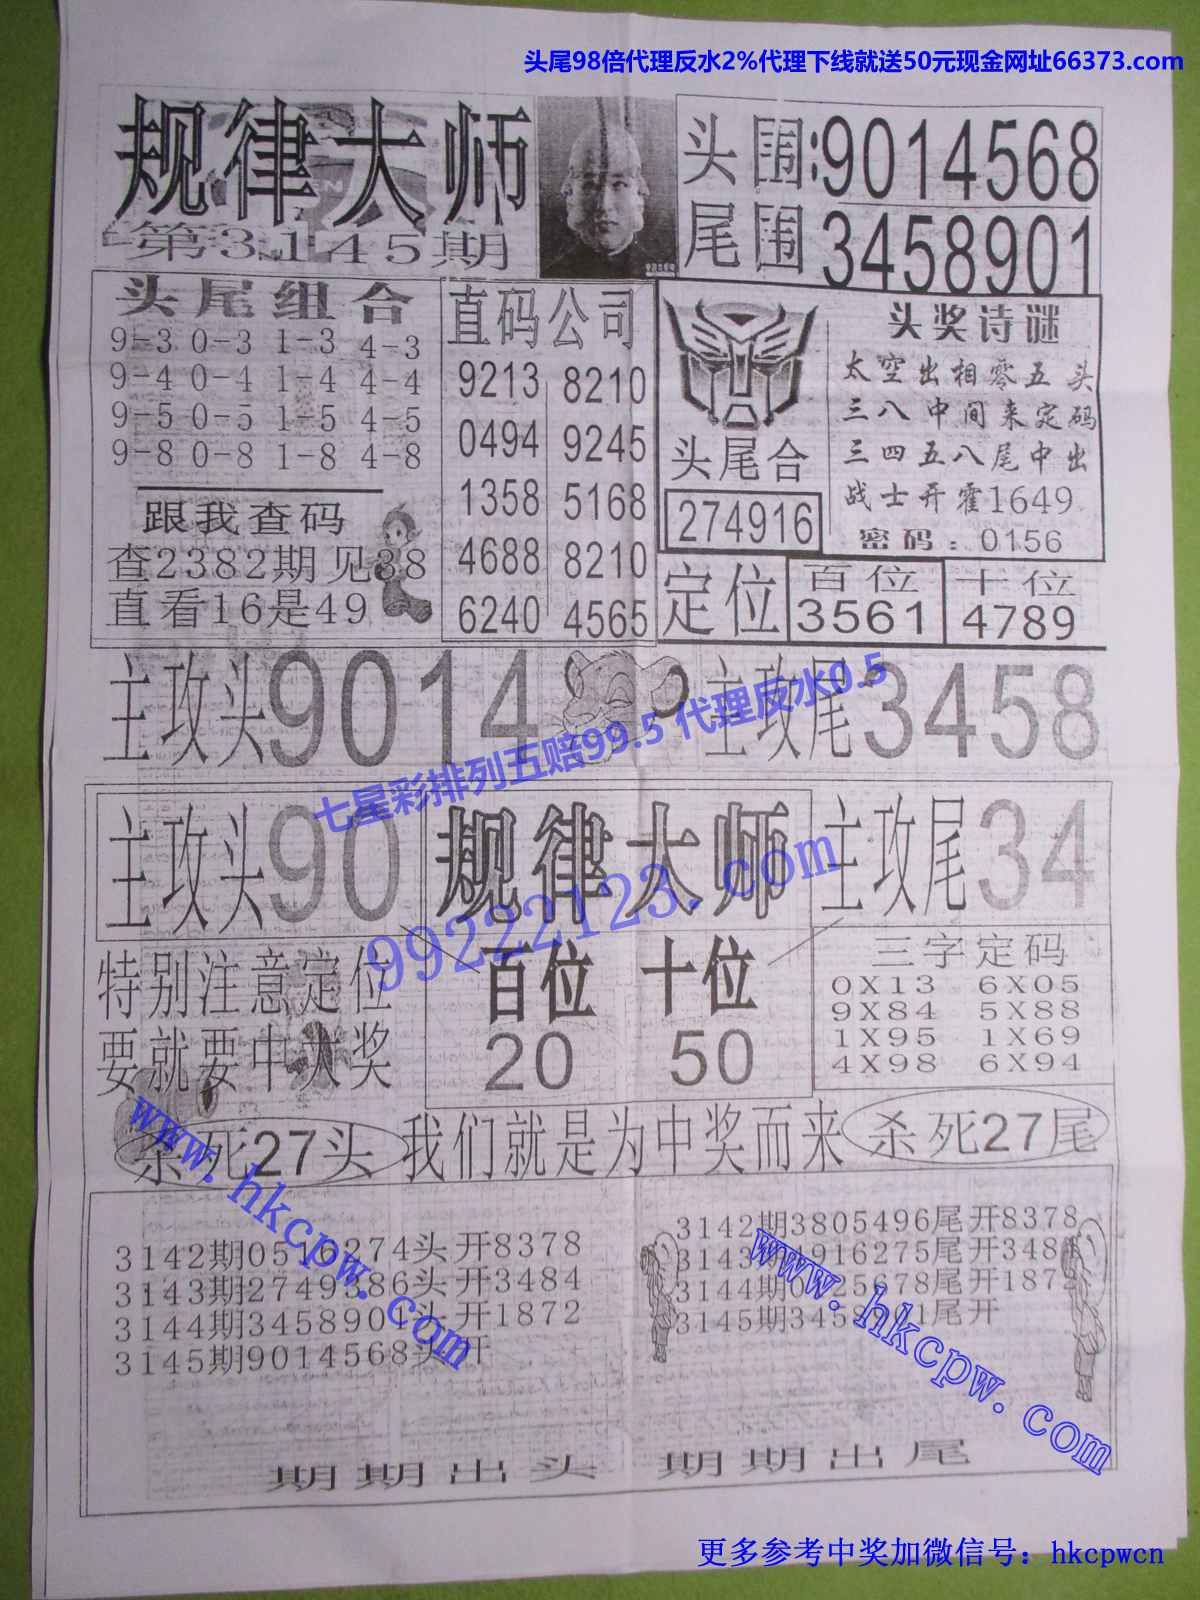 头尾98倍代理反水2%代理下线就送50元现金网址66373.com
规律大师
第3145期
头围:9014568
尾围3458901
头尾组合
9-3 0-3 1-3 4-3
9-4 0-4 1-4 4-4
9-5 0-5 1-5 4-5
9-8 0-8 1-8 4-8
跟我查码
查2382期见38
直看16是49
直码公司
9213 8210
0494 9245
1358 5168
4688 8210
6240 4565
头尾合
274916
头奖诗谜
太空出相零五头
三八中间来定码
三四五八尾中出
战士开霍1649
密码:0156
定位
百位
3561
十位
4789
主攻头9014
主攻尾3458
七星彩排列五赔99.5 代理反水0.5
主攻头90
规律大师
主攻尾34
99222123.com
特别注意定位
要就要中大奖
百位 十位
20 50
三字定码
0X13 6X05
9X84 5X88
1X95 1X69
4X98 6X94
杀死27头
我们就是为中奖而来
杀死27尾
www.hkcpw.com
www.hkcpw.com
3142期0516274头开8378
3143期2749386头开3484
3144期3458901头开1872
3145期9014568头开
3142期3805496尾开8378
3143期 916275尾开3484
3144期0 25678尾开1872
3145期3458901尾开
期期出头
期期出尾
更多参考中奖加微信号：hkcpwcn